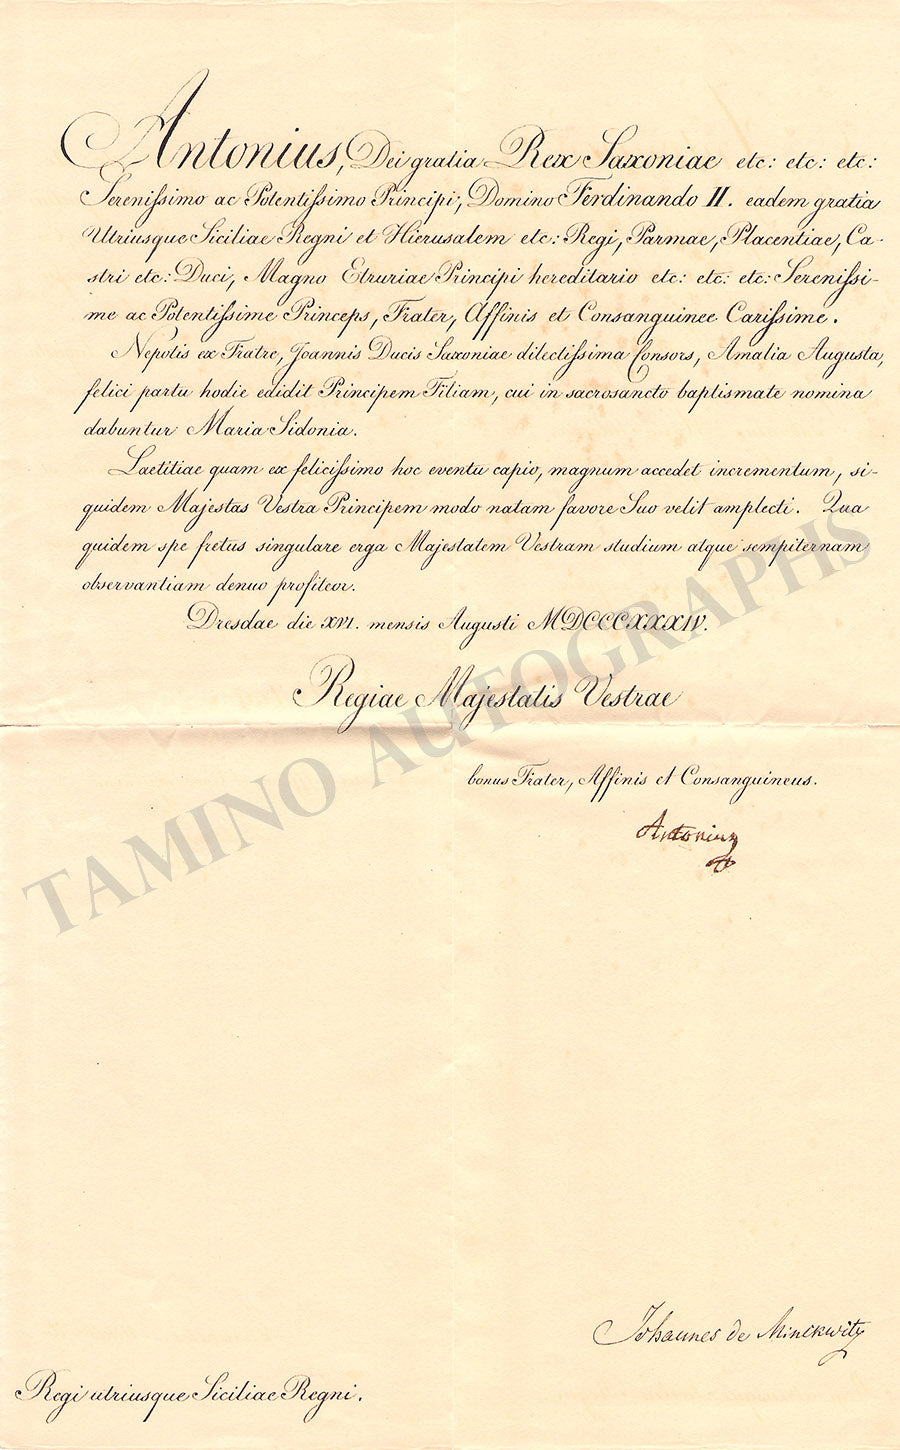 Antonius, Dei gratia Rex Saxoniae etc: etc: etc:
Serenissimo ac Potentissimo Principi, Domino Ferdinando II. eadem gratia
Utriusque Siciliae Regni et Hierusalem etc: Regi, Parmae, Placentiae, Ca-
stri etc: Duci, Magno Etruriae Principi hereditario etc: etc: etc: Serenissi-
me ac Potentissime Princeps, Frater, Affinis et Consanguinee Carissime.
Nepotis ex Fratre, Joannis Ducis Saxoniae dilectissima Consors, Amalia Augusta,
felici partu hodie edidit Principem Filiam, cui in sacrosancto baptismate nomina
dabuntur Maria Sidonia.
Laetitiae quam ex felicissimo hoc eventu capio, magnum accedet incrementum, si-
quidem Majestas Vestra Principem modo natam favore Suo velit amplecti. Qua
quidem spe fretus singulare erga Majestatem Vestram studium atque sempiternam
observantiam denuo profiteor.
Dresdae die XVI. mensis Augusti MDCCCXXXIV.
Regiae Majestatis Vestrae
bonus Frater, Affinis et Consanguineus.
Antonius
TAMINO AUTOGRAPHS
Johannes de Minckwitz
Regi utriusque Siciliae Regni.